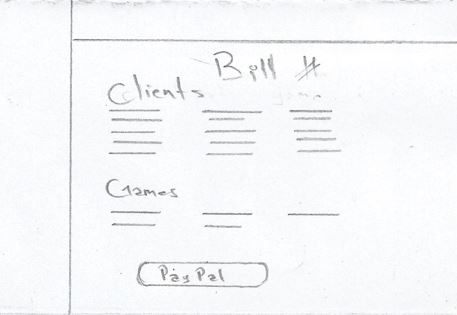 Bill #
Clients
Games
PayPal